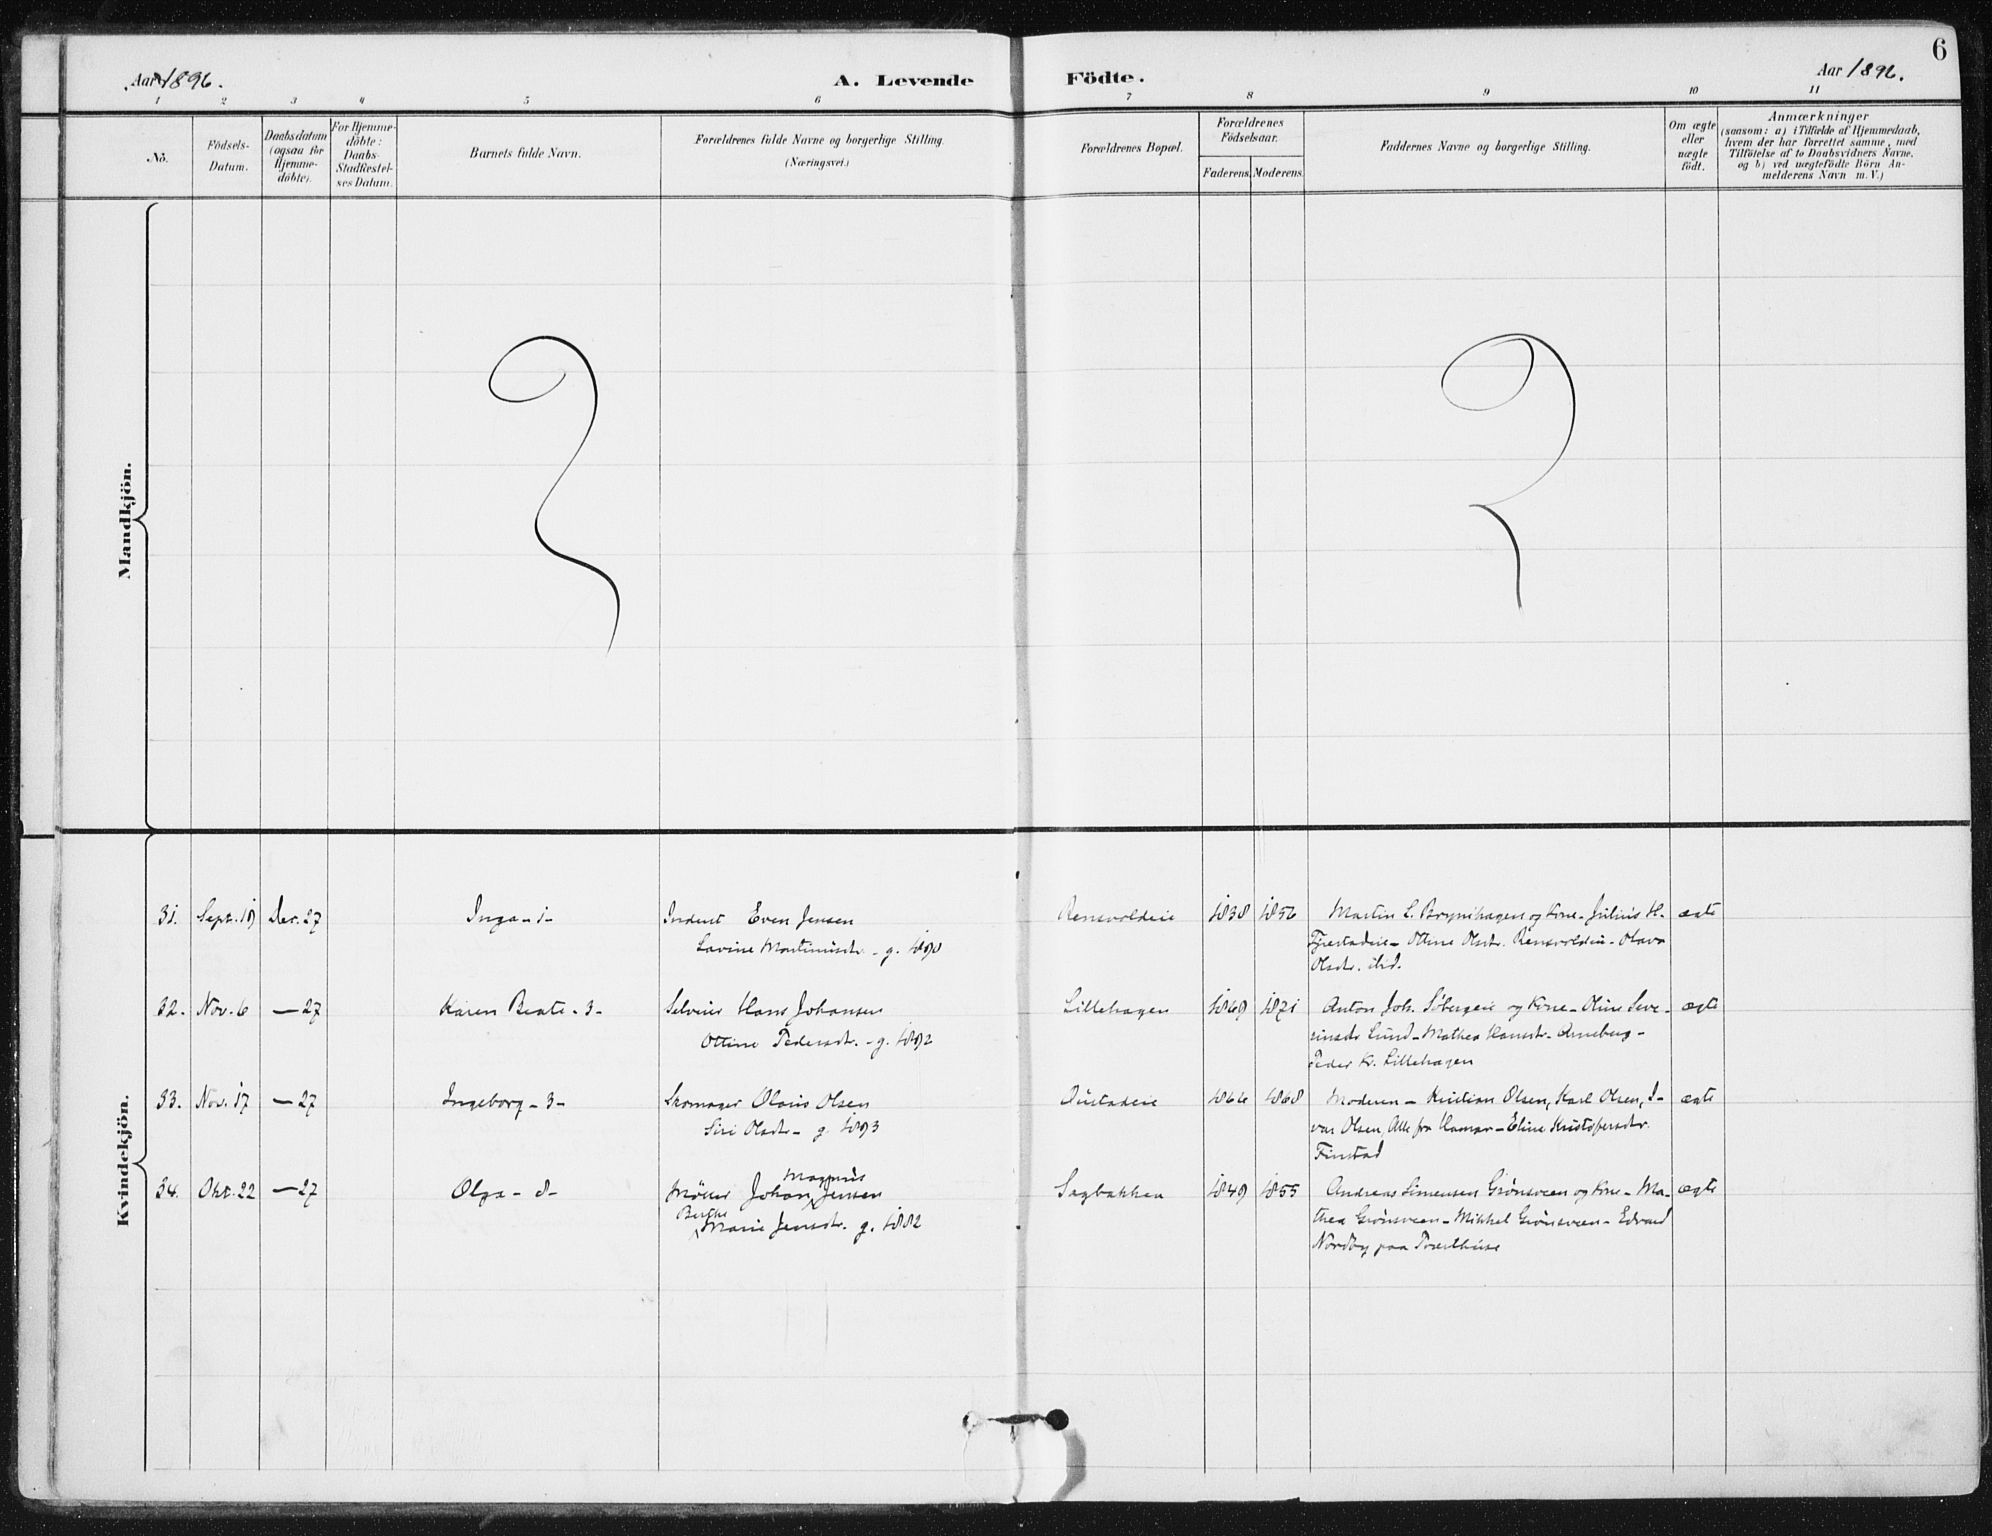 6
Aar 1896.
A. Levende Födte.
Aar 1896.
1 2 3 4 5 6 7 8 9 10 11
No.
Födsels-
Datum.
Daabsdatum
(ogsaa for
Hjemme-
döbte).
For Hjemme-
döbte:
Daabs-
Stadfæstel-
ses Datum.
Barnets fulde Navn.
Forældrenes fulde Navne og borgerlige Stilling.
(Næringsvei.)
Forældrenes Bopæl.
Forældrenes
Födselsaar.
Faderens. Moderens.
Faddernes Navne og borgerlige Stilling.
Om ægte
eller
uægte
födt.
Anmærkninger
(saasom: a) i Tilfælde af Hjemmedaab,
hvem der har forrettet samme, med
Tilföielse af to Daabsvidners Navne,
og b) ved uægtefödte Börn An-
melderens Navn m. V.)
Mandkjön.
Kvindekjön.
31. Sept. 19 Dec. 27 Inga - 1 - Inderst Even Jensen Rensvoldeie 1838 1856 Martin L. Brynihagen og Kone - Julius H. ægte
Lavine Martinusdr. - g. 1890 Tjerstadeie - Ottine Olsdr. Rensvoldeie - Olava
Olsdr. ibid.
32. Nov. 6 — 27 Karen Beate - 3 - Selveier Hans Johansen Lillehagen 1869 1871 Anton Joh. Sibergeie og Kone - Oline Seve- ægte
Ottine Pedersdr. - g. 1892 rinsdr Lund - Mathea Hansdr. Arneberg -
Peder Kr. Lillehagen
33. Nov. 17 — 27 Ingeborg - 3 - Skomager Olaus Olsen Oustadeie 1866 1868 Moderen - Kristian Olsen, Karl Olsen, I- ægte
Siri Olsdr - g. 1893 var Olsen, Alle fra Hamar - Eline Kristofersdr.
Finstad
34. Okt. 22 — 27 Olga - 8 - Møller Johan Magnus Jensen Sagbakken 1849 1855 Andreas Simensen Grønsveen og Kone - Ma- ægte
Berthe Marie Jensdr. g. 1882 thea Grønsveen - Mikkel Grønsveen - Edvard
Nordby paa Træelhuse